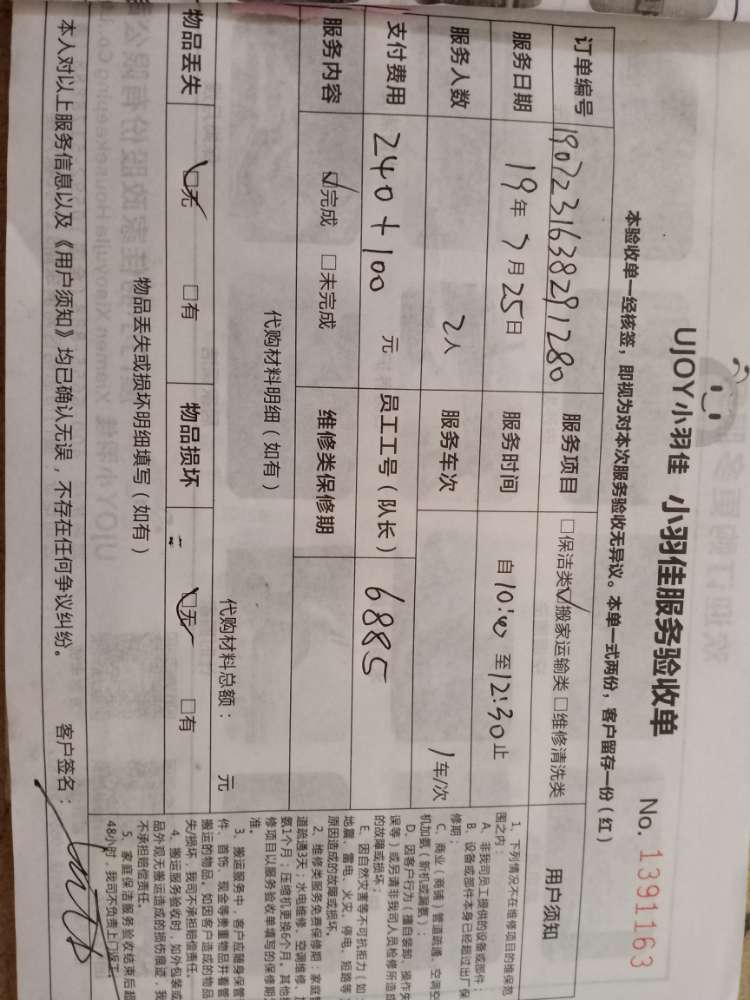 UJOY小羽佳 小羽佳服务验收单 No. 1391163
本验收单一经核签，即视为对本次服务验收无异议。本单一式两份，客户留存一份(红)
订单编号 1907231638291280 服务项目 □保洁类☑搬家运输类 □维修清洗类
服务日期 19年7月25日 服务时间 自10:00至12:30止
服务人数 2人 服务车次 1车/次
支付费用 240+100 元 员工工号(队长) 6885
服务内容 ☑完成 □未完成 维修类保修期
代购材料明细(如有) 代购材料总额： 元
物品丢失 ☑无 □有 物品损坏 ☑无 □有
物品丢失或损坏明细填写(如有)
本人对以上服务信息以及《用户须知》均已确认无误，不存在任何争议纠纷。 客户签名：
用户须知
1、下列情况不在维修项目的维保范
围之内：
A、非我司员工提供的设备或部件；
B、设备或部件本身已经超过出厂保
修期；
C、商业(商铺)管道疏通、空调空
机加氨(新机或漏氨)；
D、因客户行为(擅自装卸、操作失
误等)或另请非我司人员检修所造成
的故障或损坏；
E、因自然灾害等不可抗拒力(如
地震、雷电、火灾、停电、短路等
原因造成的故障或损坏。
2、维修类服务免费保修期：家庭
道疏通3天；水电维修、空调维修、
氨1个月；压缩机更换6个月。其他
修项目以服务验收单填写的保修期
准。
3、搬运服务中，客户应随身保管
件、首饰、现金等贵重物品并看管
搬运的物品。如因客户造成的物品
失/损坏，我司不承担赔偿责任。
4、搬运服务验收时，如外包装或
品外观无搬运造成的损伤痕迹，我
不承担赔偿责任。
5、家庭保洁服务验收结束后超
48小时，我司不负责上门返工。